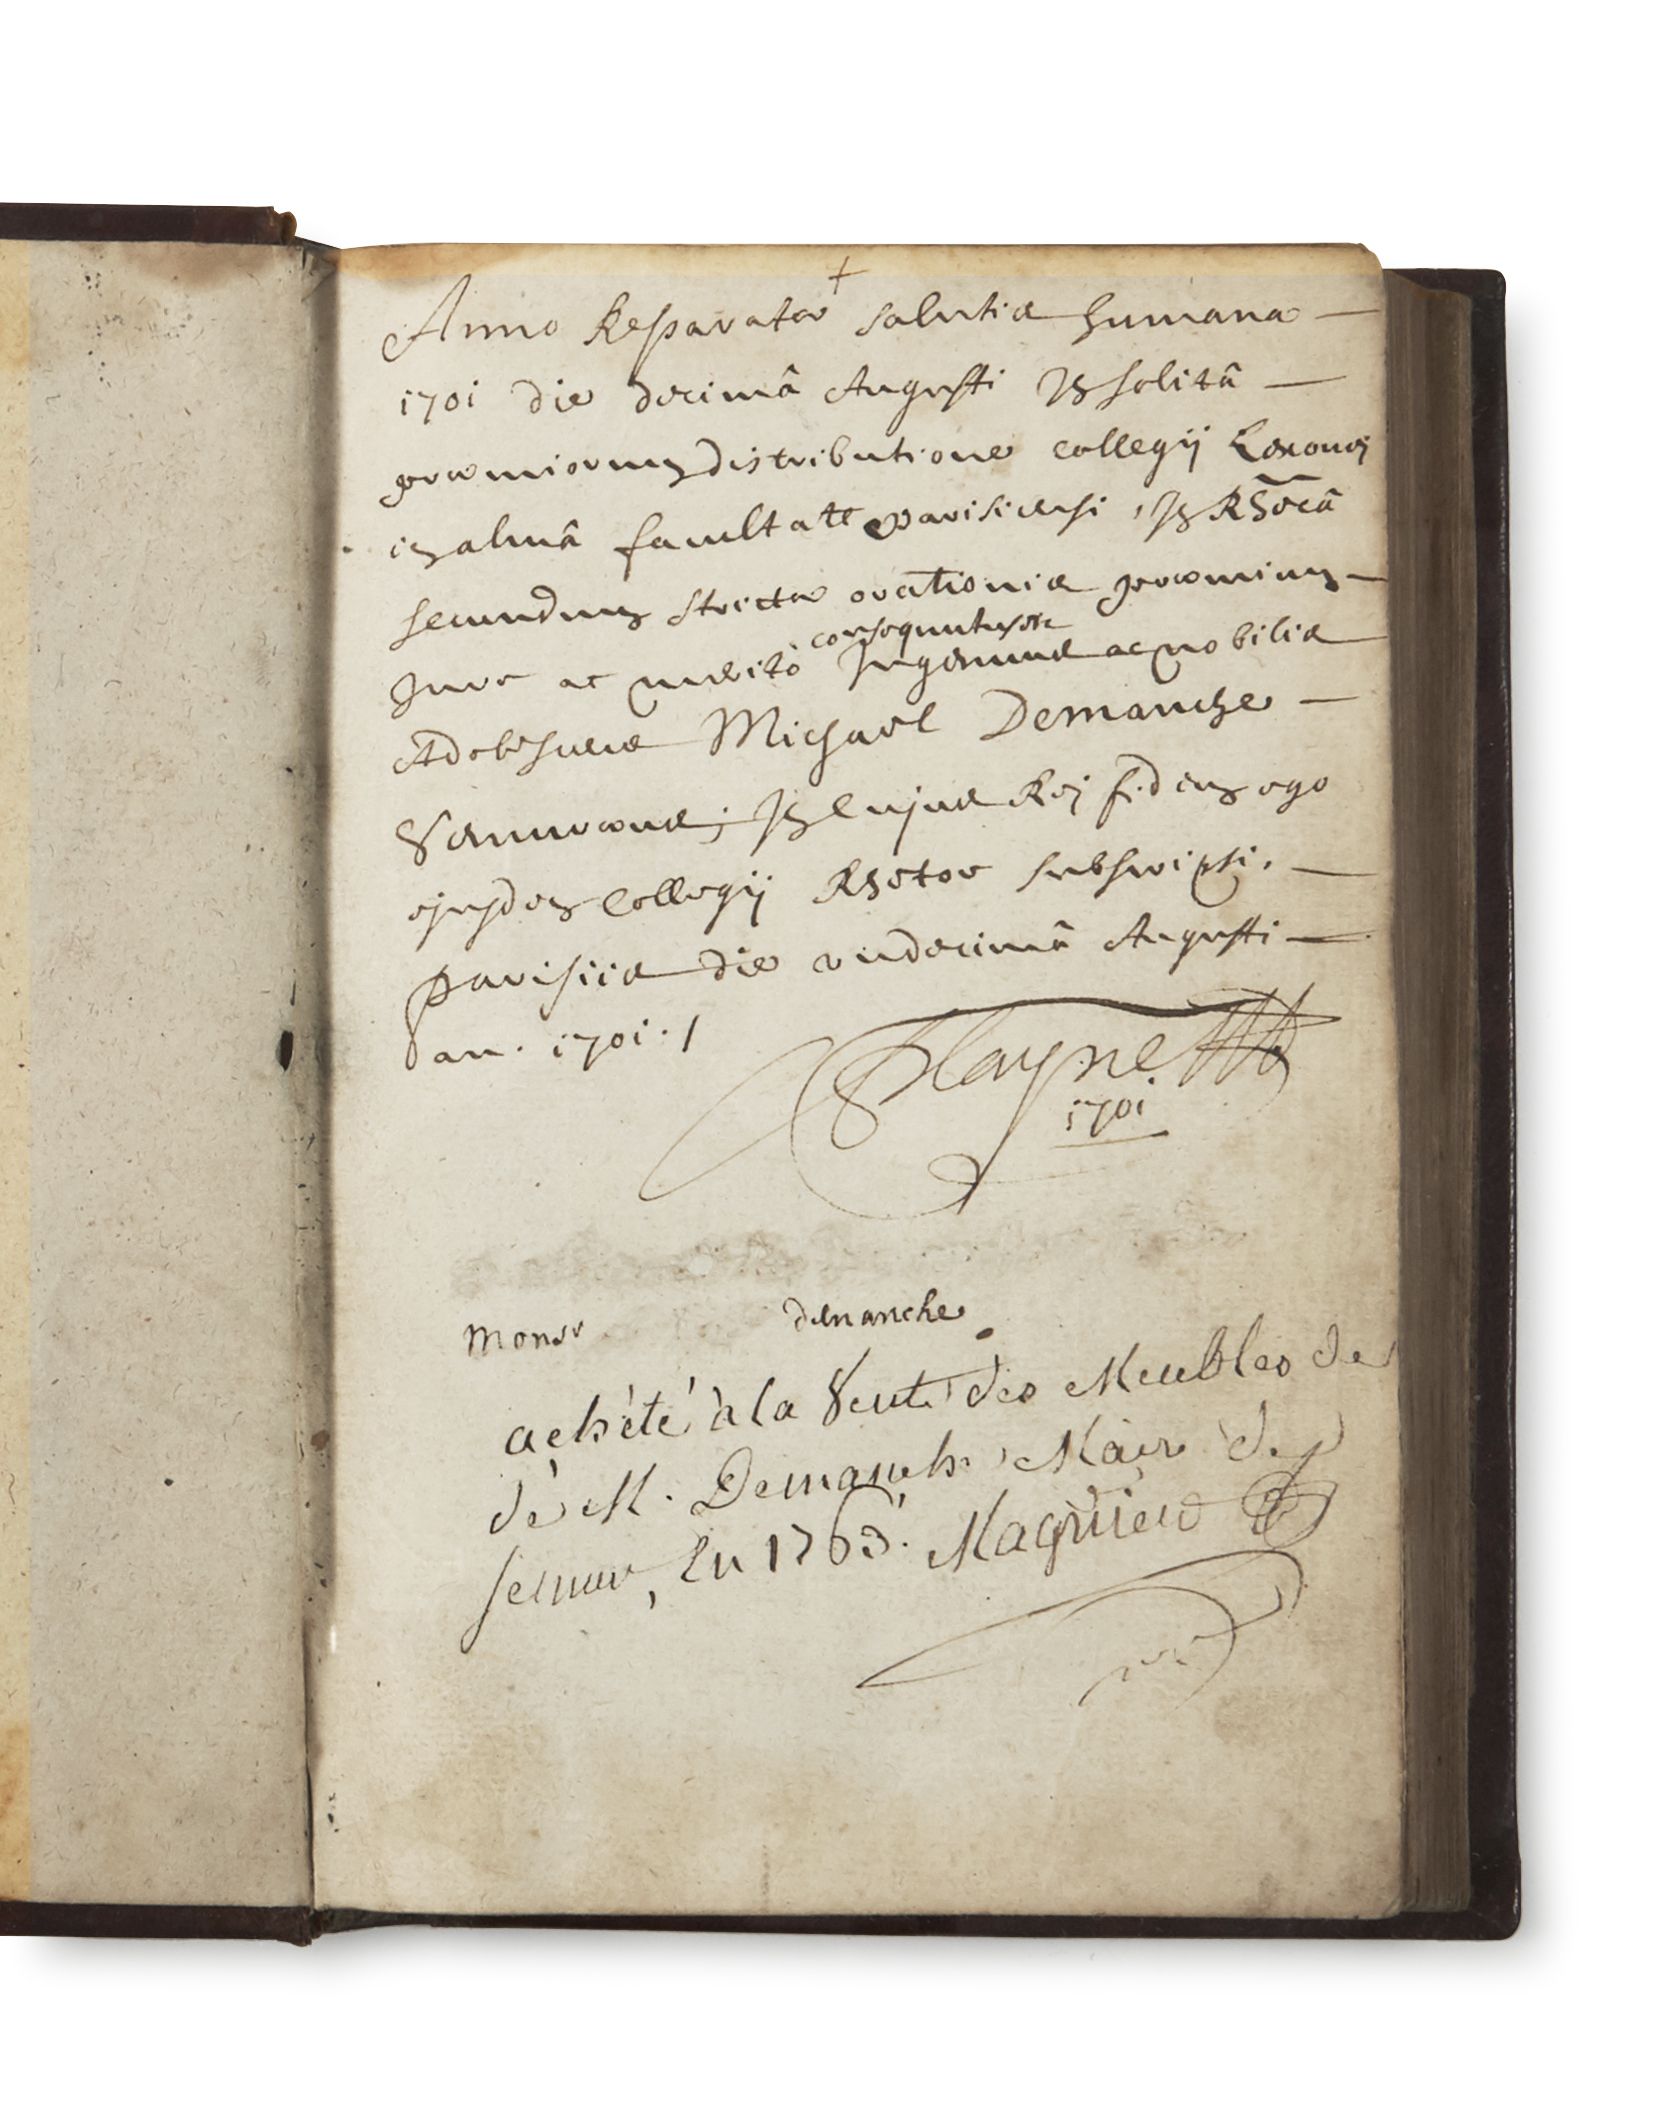 +
Anno Reparatae salutis humanae —
1701 die decimâ Augusti In solitâ —
praemiorum distributione collegij Lexovaei
in almâ facultate parisiensi, In Rhetoricâ
secundum strictae orationis praemium —
consequutus est
Jure ac meritò Ingenuus ac nobilis
Adolescens Michael Demanche —
Sennovaeus; In cujus Rei fidem ego
ejusdem Collegij Rector subscripsi. —
parisiis die undecimâ Augusti —
an. 1701. /
1701
Monsr demanche
acheté à la Vente des Meubles de
de M. Demanche Maire de
semur, En 1763.